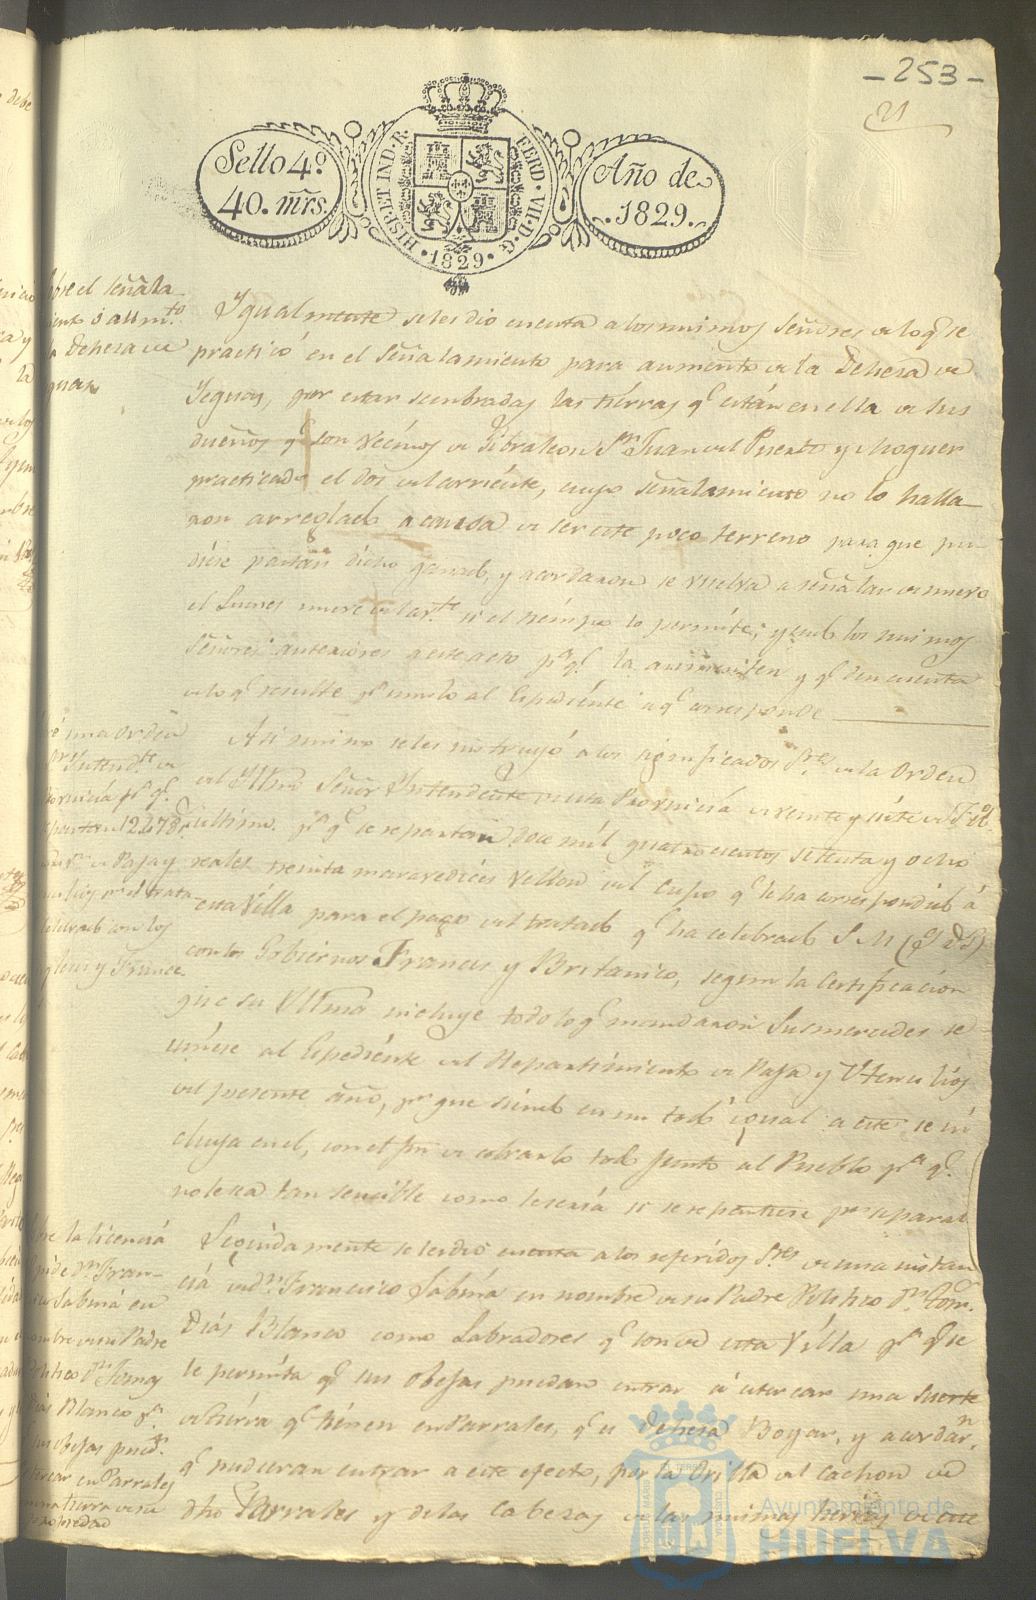 -253-
21
Sello 4º.
40. mrs.
HISP. ET IND. R.
FERD. VII. D. G.
1829
Año de
1829.
sobre el señala
miento o aum.to
la Dehesa de
Yeguas
Ygualmente se les dio cuenta a los mismos Señores de lo q.e se
practicó en el Señalamiento para aumento de la Dehesa de
Yeguas, por estar sembradas las tierras q.e están en ella de sus
dueños q.e son vecinos de Gibraleon S.n Juan del Puerto y Moguer
practicado el dos del corriente, cuyo señalamiento no lo halla
ron arreglado a causa de ser este poco terreno para que pu
diese pastar dicho ganado, y acordaron se vuelva a señalar de nuevo
el Lunes nueve del cor.te si el tiempo lo permite; yendo los mismos
Señores anteriores a este acto p.a q.e la aumenten y q.e den cuenta
de lo q.e resulte p.a unirlo al Espediente a q.e corresponde
una orden
Intend.te de
Provincia p.a q.e
repartan 12478 r.s
de Paja y
trata
celebrado con los
Ingleses y France
Asi mismo se les instruyó a los significados S.res de la Orden
del Yltmo Señor Yntendente de esta Provincia de veinte y siete de Feb.o
ultimo, p.a q.e se repartan doce mil quatrocientos setenta y ocho
reales treinta maravedices vellon del cupo q.e le ha correspondido á
esta Villa para el pago del tratado q.e ha celebrado S. M. (q. D. g.)
con los Gobiernos Frances y Britanico, segun la Certificacion
que su Yltma incluye todo lo q.e mandaron Sus mercedes se
uniese al Espediente del Repartimiento de Paja y Utencilios
del presente año, p.a que siendo en un todo igual a este, se in
cluya en el, con el fin de cobrarlo todo junto al Pueblo p.a q.e
no le sea tan sencible como le seria si se repartiese por separado
sobre la licencia
pide D.n Fran-
co Sabina en
nombre de su Padre
Politico D.n Tomas
Dias Blanco p.a
sus obejas pued.n
estercar en Parrales
una tierra de su
propiedad
Seguidamente se les dió cuenta a los referidos S.res de una instan
cia de D.n Francisco Sabina en nombre de su Padre Politico D.n Tom.s
Dias Blanco como Labradores q.e son de esta Villa p.a q.e se
le permita q.e sus Obejas puedan entrar á estercar una suerte
de tierra q.e tienen en Parrales, q.e es dehesa Boyar, y acordar.n
q.e pudieran entrar a este efecto, por la Orilla del cachon de
dho Parrales y de las Cabezas de las mismas tierras de este
Ayuntamiento de
HUELVA